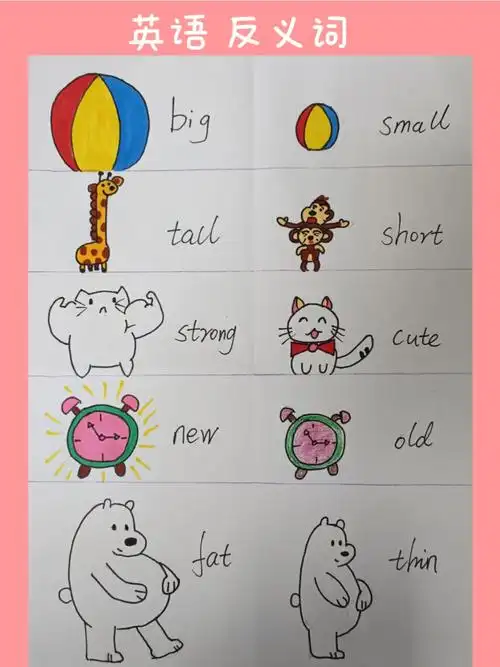 英语 反义词
big small
tall short
strong cute
new old
fat thin